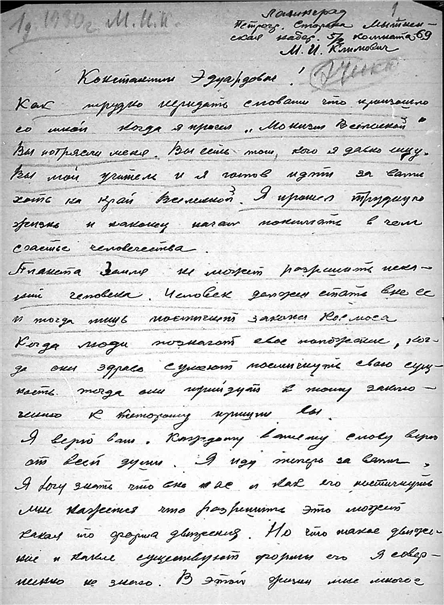 1
1930 г М.И.К.
Ленинград
Петрог. Сторона Мытнин-
ская набер. 5/2 комната 69
М. И. Климович
Константин Эдуардович!
Как трудно передать словами что произошло
со мной когда я прочел „Монизм Вселенной"
Вы потрясли меня. Вы есть тот, кого я давно ищу.
Вы мой учитель и я готов идти за вами
хоть на край Вселенной. Я прошел трудную
жизнь и наконец начал понимать в чем
счастье человечества.
Планета Земля не может разрешить
человека. Человек должен стать вне ее
и тогда лишь постигнет законы Космоса
Когда люди познают свое положение, ког-
да они здраво сумеют постигнуть свою сущ-
ность тогда они прийдут к тому заклю-
чению к которому пришли вы.
Я верю вам. Каждому вашему слову верю
от всей души. Я иду теперь за вами.
Я хочу знать что вне нас и как его постигнуть
Мне кажется что разрешить это может
какая то форма движения. Но что такое движе-
ние и какие существуют формы его я совер-
шенно не знаю. В этой физии мне многое